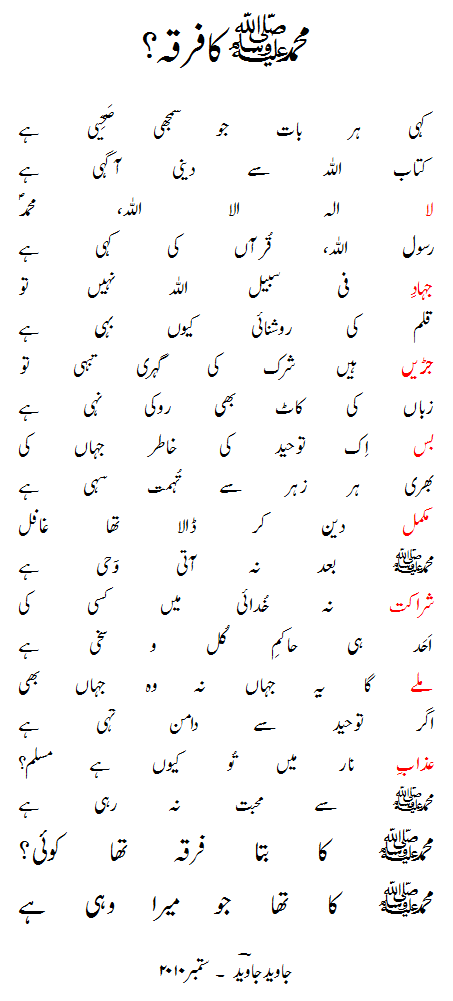 محمد ﷺ کا فرقہ؟
کہی ہر بات جو سمجھی صَحِیی ہے
کتاب اللہ سے دینی آگہی ہے
لا الہ الا اللہ، محمدؐ
رسول اللہ، قُرآں کی کہی ہے
جہادِ فی سبیل اللہ نہیں تو
قلم کی روشنائی کیوں بہی ہے
جڑیں ہیں شرک کی گہری تبہی تو
زباں کی کاٹ بھی روکی نہی ہے
بس اِک توحید کی خاطر جہاں کی
بھری ہر زہر سے تُہمت سہی ہے
مکمل دین کر ڈالا تھا غافل
محمد ﷺ بعد نہ آتی وَحی ہے
شراکت نہ خُدائی میں کسی کی
اَحَد ہی حاکمِ کُل و سخی ہے
ملے گا یہ جہاں نہ وہ جہاں بھی
اگر توحید سے دامن تہی ہے
عذابِ نار میں تُو کیوں ہے مسلم؟
محمد ﷺ سے محبت نہ رہی ہے
محمد ﷺ کا بتا فرقہ تھا کوئی؟
محمد ﷺ کا تھا جو میرا وہی ہے
جاوید جاویدؔ ۔ ستمبر ۲۰۱۰